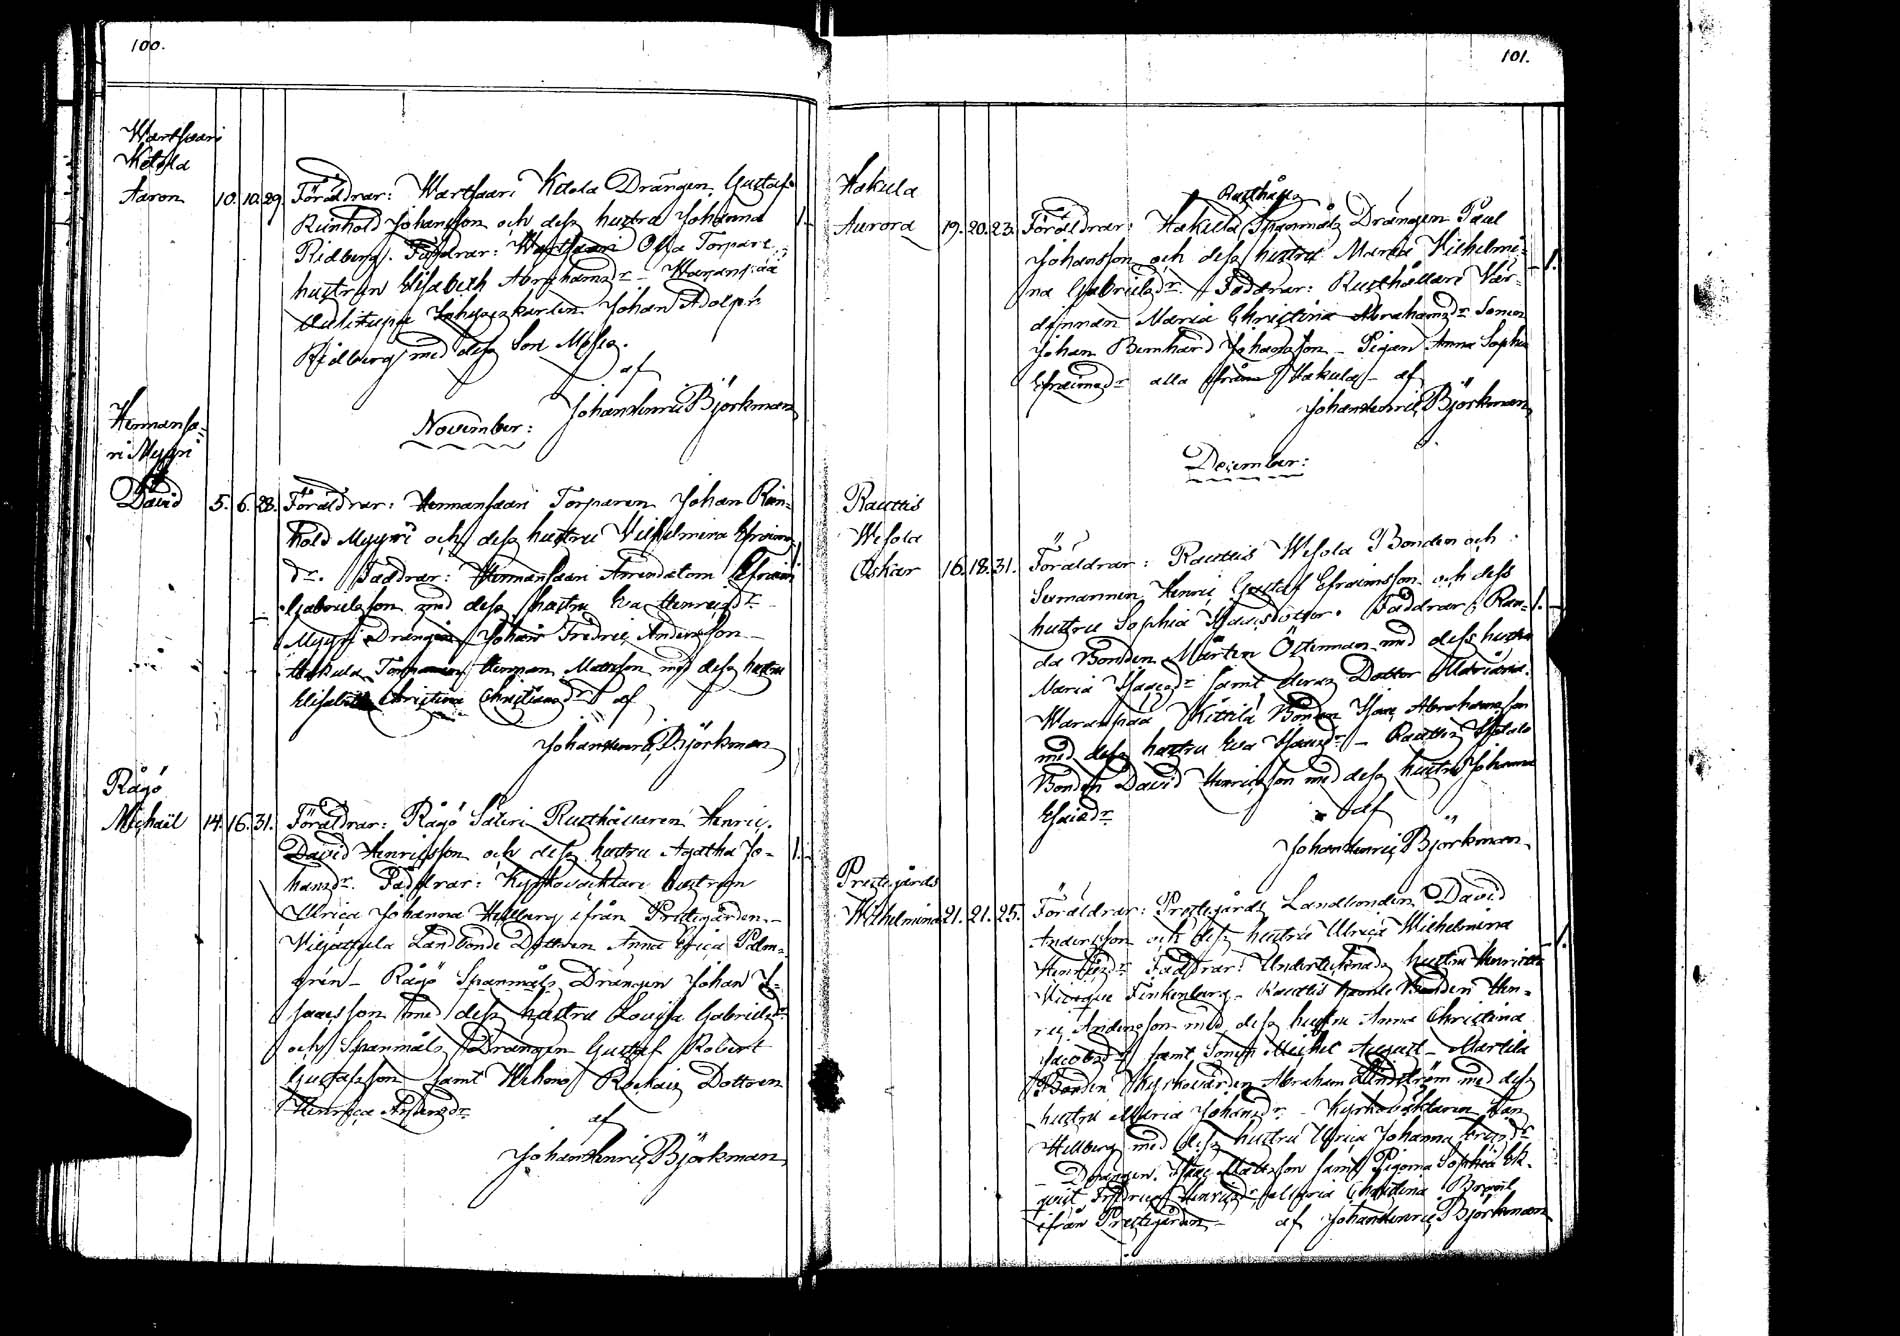 100.
Wartsaari
Ketola
Aaron 10. 10. 29. Föräldrar: Wartsaari Ketola Drängen Gustaf
Reinhold Johansson och dess hustru Johanna
Ridberg. Faddrar: Wartsaari Torpare
hustrun Elisabeth Abrahamsdr - Waranpää
Johan Adolph
Ridberg med dess Son
af
Johan Henric Björkman
November:
Hermansa-
ri Myyri
David 5. 6. 28. Föräldrar: Hermansaari Torparen Johan Rein-
hold Myyri och dess hustru Wilhelmina Efraims
dr. Faddrar: Hermansaari Arendatorn Efraim
Gabrielsson med dess hustru Eva Henricsdr -
Myyri Drängen Johan Fredric Andersson -
Hakula Torparen Herman Matsson med dess hustru
Elisabeth Christina Christiansdr af
Johan Henric Björkman
Rågö
Michaël 14. 16. 31. Föräldrar: Rågö Säteri Rusthållaren Henric
David Henricsson och dess hustru Agatha Jo-
hansdr. Faddrar: Kyrkovacktare hustrun
Ulrica Johanna Hellberg ifrån Prestegården -
Landbonde Dottren Anna Erica Palm-
grén - Rågö Spanmåls Drängen Johan I-
saacsson med dess hustru Lovisa Gabrielsdr
och Spanmåls Drängen Gustaf Robert
Gustafsson samt Dottren
Henrica
af
Johan Henric Björkman
101.
Hakula
Rusthålls
Aurora 19. 20. 23. Föräldrar: Hakula Spanmåls Drängen Paul
Johansson och dess hustru Maria Wilhelmi-
na Gabrielsdr. Faddrar: Rusthållare Vär-
dinnan Maria Christina Abrahamsdr Sonen
Johan Bernhard Johansson - Pigan Anna Sophia
Efraimsdr alla från Hakula - af
Johan Henric Björkman
December:
Rauttis
Wesola
Oskar 16. 18. 31. Föräldrar: Rauttis Wesola Bonden och
Sexmannen Henric Gustaf Efraimsson och dess
hustru Sophia Isaacsdotter. Faddrar: Ran-
da Bonden Mårten Österman med dess hustru
Maria Isaacsdr samt deras Dotter
Waranpää Kittilä Bonden Isaac Abrahamsson
med dess hustru Eva Isaacsdr - Rauttis
Bonden David Henricsson med dess hustru Johanna
Esaiedr
af
Johan Henric Björkman
Prestegårds
Wilhelmina 21. 21. 25. Föräldrar: Prestegårds Landbonden David
Andersson och dess hustru Ulrica Wilhelmina
Henricsdr Faddrar: Undertecknads hustru Henrietta
Finkenberg - Rauttis Bonden Hen-
ric Andersson med dess hustru Anna Christina
Jacobsdr samt Sonen Michel August - Martila
Bonden Kyrkovärden Abraham Lindström med dess
hustru Maria Johansdr - Kyrkovacktaren
Hellberg med dess hustru Ulrica Johanna
- Drängen Isaac Matsson samt Pigorna Sophia Ek-
qvist Fredrica Henricsdr Maria Christina
ifrån Prestegården - af Johan Henric Björkman